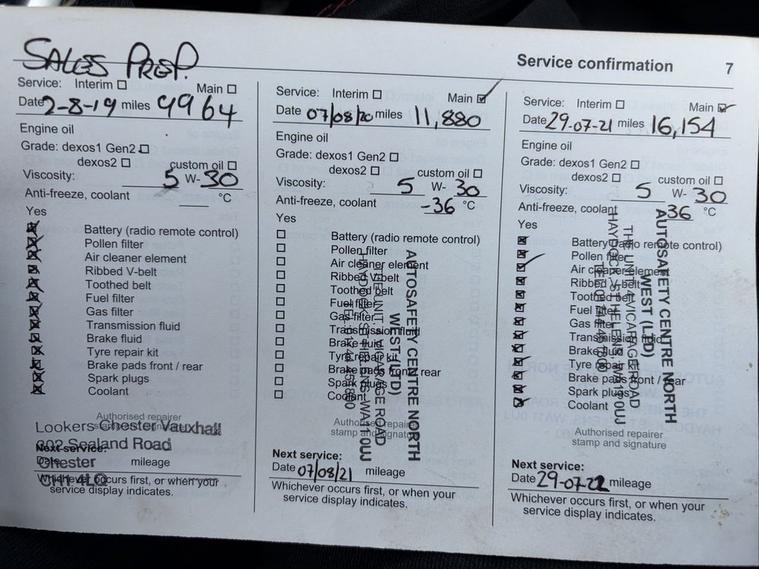 Service confirmation 7
SALES PREP.
Service: Interim ☐ Main ☐
Date 2-8-19 miles 9964
Engine oil
Grade: dexos1 Gen2 ☐
dexos2 ☐ custom oil ☐
Viscosity: 5 W- 30
Anti-freeze, coolant °C
Yes
Battery (radio remote control)
Pollen filter
Air cleaner element
Ribbed V-belt
Toothed belt
Fuel filter
Gas filter
Transmission fluid
Brake fluid
Tyre repair kit
Brake pads front / rear
Spark plugs
Coolant
Authorised repairer
stamp and signature
Lookers Chester Vauxhall
Sealand Road
Chester
CH1 4LQ
Next service:
Date mileage
Whichever occurs first, or when your
service display indicates.
Service: Interim ☐ Main ☑
Date 07/08/20 miles 11,880
Engine oil
Grade: dexos1 Gen2 ☐
dexos2 ☐ custom oil ☐
Viscosity: 5 W- 30
Anti-freeze, coolant -36 °C
Yes
Battery (radio remote control)
Pollen filter
Air cleaner element
Ribbed V-belt
Toothed belt
Fuel filter
Gas filter
Transmission fluid
Brake fluid
Tyre repair kit
Brake pads front / rear
Spark plugs
Coolant
Authorised repairer
stamp and signature
AUTOSAFETY CENTRE NORTH
WEST (LTD)
Next service:
Date 07/08/21 mileage
Whichever occurs first, or when your
service display indicates.
Service: Interim ☐ Main ☑
Date 29-07-21 miles 16,154
Engine oil
Grade: dexos1 Gen2 ☐
dexos2 ☐ custom oil ☐
Viscosity: 5 W- 30
Anti-freeze, coolant -36 °C
Yes
Battery (radio remote control)
Pollen filter
Air cleaner element
Ribbed V-belt
Toothed belt
Fuel filter
Gas filter
Transmission fluid
Brake fluid
Tyre repair kit
Brake pads front / rear
Spark plugs
Coolant
Authorised repairer
stamp and signature
AUTOSAFETY CENTRE NORTH
WEST (LTD)
Next service:
Date 29-07-22 mileage
Whichever occurs first, or when your
service display indicates.